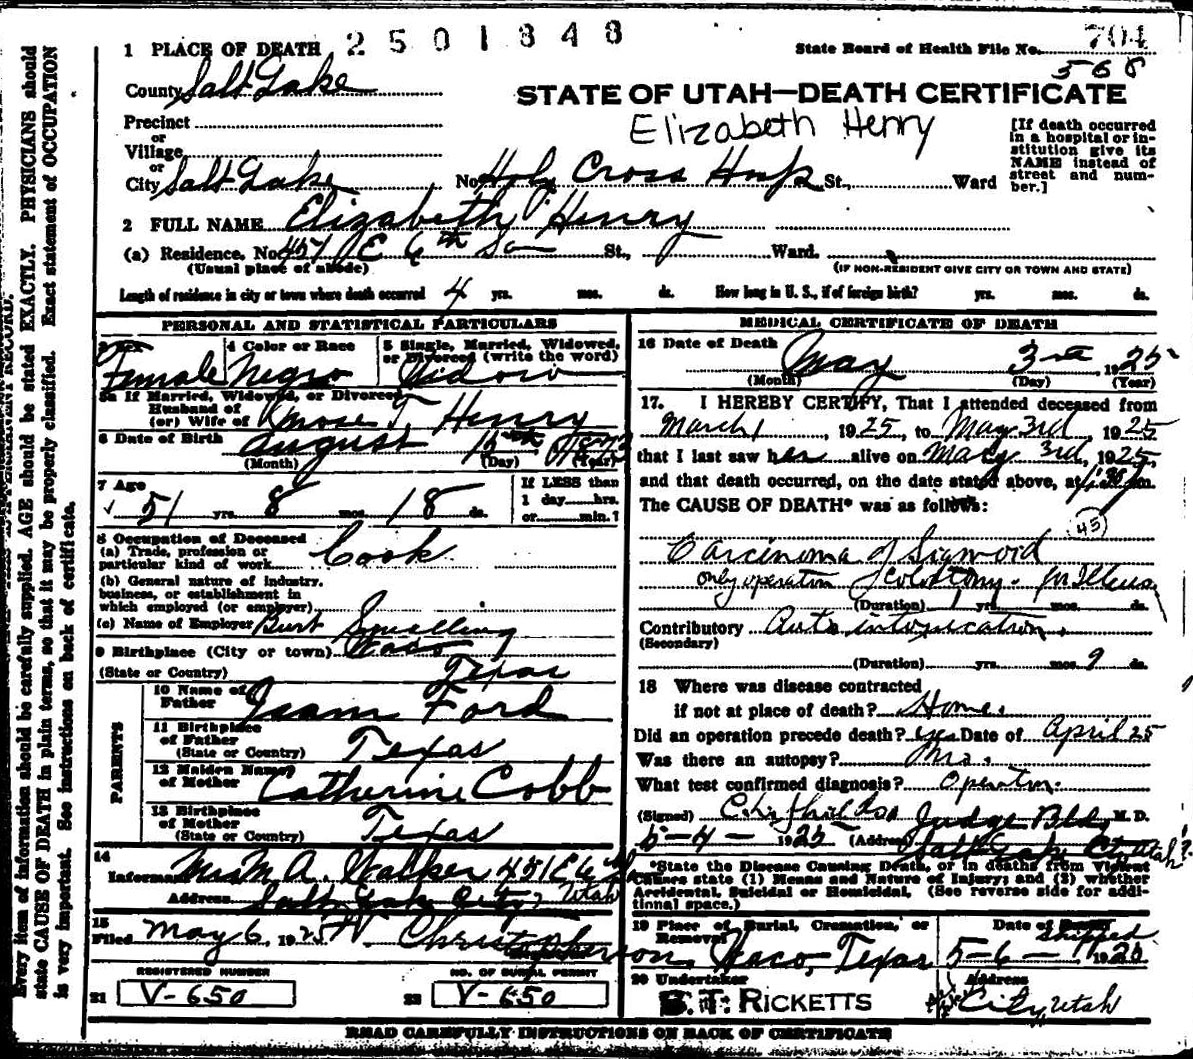 1 PLACE OF DEATH 2501848
State Board of Health File No. 704
568
County Salt Lake
STATE OF UTAH—DEATH CERTIFICATE
Elizabeth Henry
Precinct
or
Village
or
City Salt Lake No. Holy Cross Hosp St., Ward
[If death occurred
in a hospital or in-
stitution give its
NAME instead of
street and num-
ber.]
2 FULL NAME Elizabeth Henry
(a) Residence. No. 451 E 6th So St., Ward.
(Usual place of abode) (IF NON-RESIDENT GIVE CITY OR TOWN AND STATE)
Length of residence in city or town where death occurred 4 yrs. mos. ds. How long in U. S., if of foreign birth? yrs. mos. ds.
PERSONAL AND STATISTICAL PARTICULARS
3 Sex 4 Color or Race 5 Single, Married, Widowed,
or Divorced (write the word)
Female Negro Widow
5a If Married, Widowed, or Divorced
Husband of
(or) Wife of Mose T Henry
6 Date of Birth August 15th 1873
(Month) (Day) (Year)
7 Age
51 yrs. 8 mos. 18 ds.
If LESS than
1 day hrs.
or min.?
8 Occupation of Deceased
(a) Trade, profession or
particular kind of work Cook
(b) General nature of industry,
business, or establishment in
which employed (or employer)
(c) Name of Employer Burt
9 Birthplace (City or town) Waco
(State or Country) Texas
PARENTS
10 Name of
Father Ford
11 Birthplace
of Father
(State or Country) Texas
12 Maiden Name
of Mother Catherine Cobb
13 Birthplace
of Mother
(State or Country) Texas
14
Informant Mrs M A. Walker 451 E 6 So
Address Salt Lake City, Utah
15
Filed May 6, 1925 W. Christopherson
REGISTERED NUMBER NO. OF BURIAL PERMIT
21 V-650 22 V-650
MEDICAL CERTIFICATE OF DEATH
16 Date of Death May 3rd, 1925
(Month) (Day) (Year)
17. I HEREBY CERTIFY, That I attended deceased from
March 1, 1925, to May 3rd 1925
that I last saw her alive on May 3rd, 1925,
and that death occurred, on the date stated above, at m.
The CAUSE OF DEATH* was as follows:
45
Carcinoma of Sigmoid
only operation Colostomy. for Illeus
(Duration) 1 yrs. mos. ds.
Contributory Auto intoxication.
(Secondary)
(Duration) yrs. mos. 9 ds.
18 Where was disease contracted
if not at place of death? Home.
Did an operation precede death? yes Date of April 25
Was there an autopsy? No.
What test confirmed diagnosis? Operation.
(Signed) Judge Bldg M. D.
5-4-1925 (Address) Salt Lake City Utah
*State the Disease Causing Death, or in deaths from Violent
Causes state (1) Means and Nature of Injury; and (2) whether
Accidental, Suicidal or Homicidal. (See reverse side for addi-
tional space.)
19 Place of Burial, Cremation, or
Removal Waco, Texas
Date of Burial
Shipped
5-6-1925
20 Undertaker Address
S.T. RICKETTS City, Utah
READ CAREFULLY INSTRUCTIONS ON BACK OF CERTIFICATE
Every item of information should be carefully supplied. AGE should be stated EXACTLY. PHYSICIANS should
state CAUSE OF DEATH in plain terms, so that it may be properly classified. Exact statement of OCCUPATION
is very important. See instructions on back of certificate.